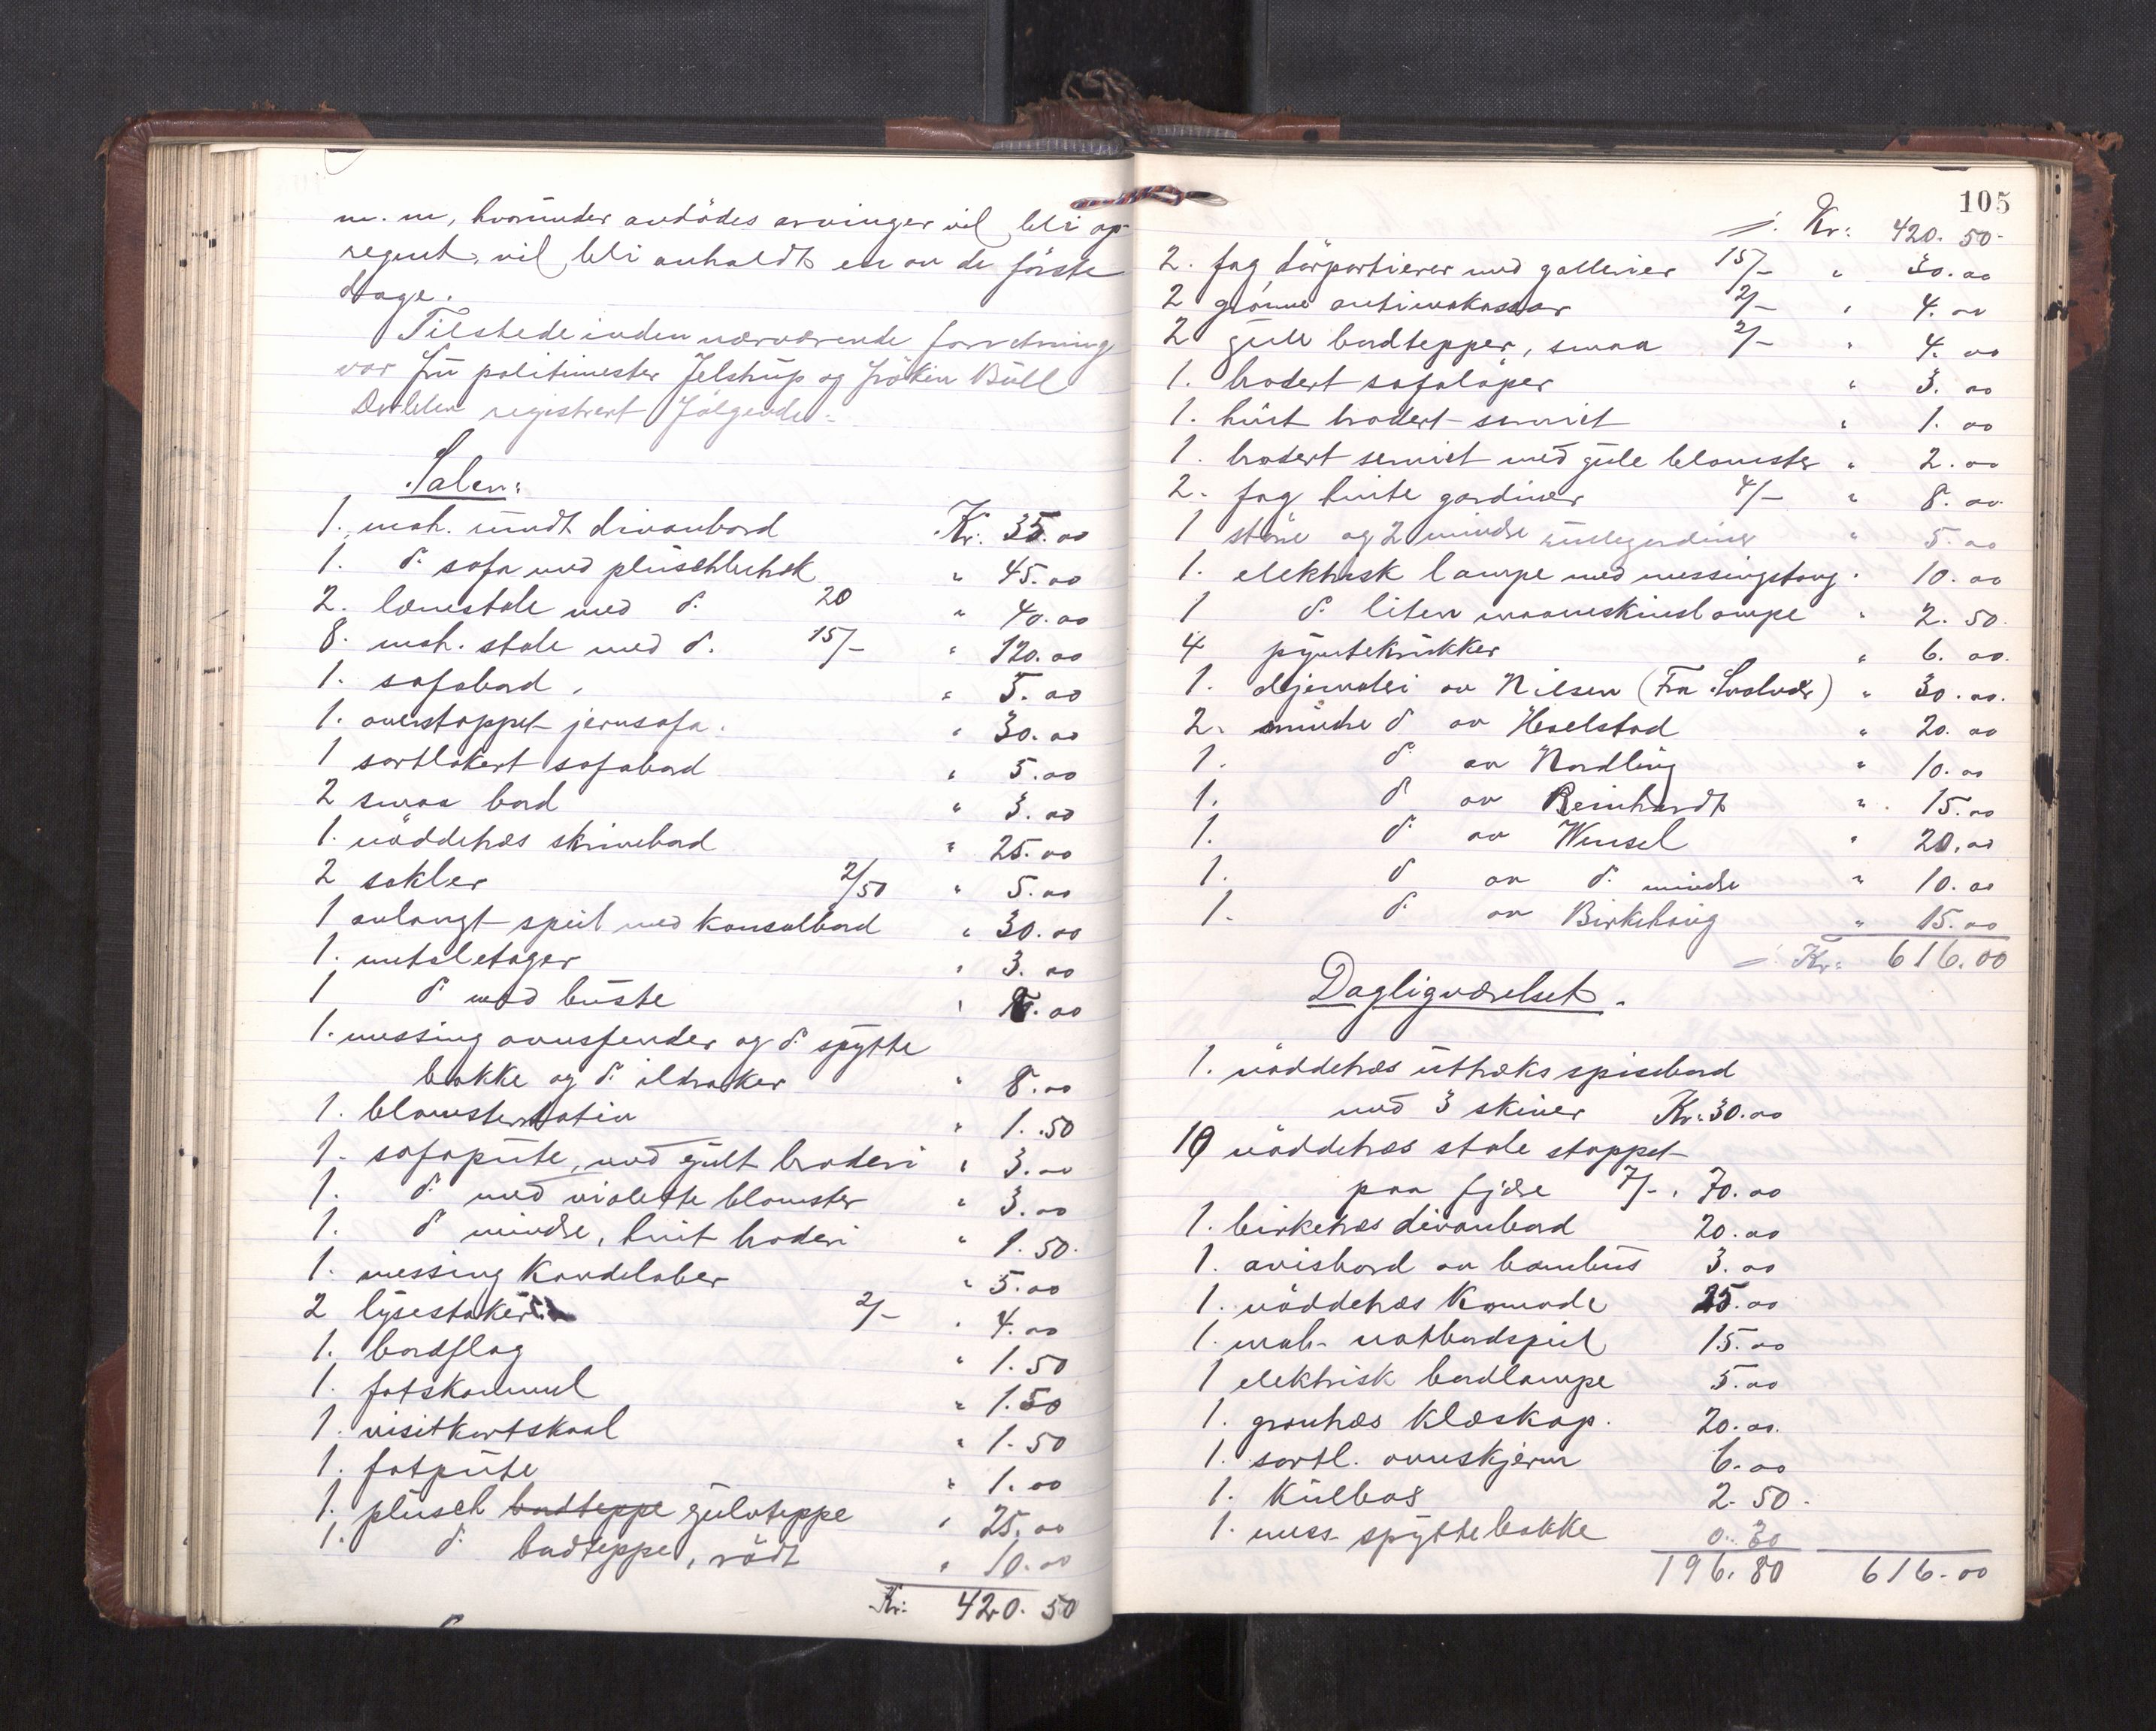 m. m, hvorunder avdödes arvinger vil bli op-
regnet, vil bli anholdt en av de förste
dage.
Tilstede inden nærværende forretning
var fru politimester Jelstrup og fröken Bull
Derefter registrert følgende:
Salen:
1. mah. rundt divanbord Kr. 35.00
1. d: sofa med pluschbetræk " 45.00
2. lænestole med d: 20 " 40.00
8. mah. stole med d. 15/- " 120.00
1. sofabord. " 5.00
1. overstoppet jernsofa. " 30.00
1 sortlakert sofabord " 5.00
2 smaa bord " 3.00
1. nöddetræs skrivebord " 25.00
2 sokler 2/50 " 5.00
1 avlangt speil med Konsolbord " 30.00
1. metaletager " 3.00
1 d: med büste " .00
1. messing ovnsfender og d: spytte
bakke og d: ildraker " 8.00
1. blomsterstativ " 1.50
1. sofapute, med gult broderi " 3.00
1. d: med violette blomster " 3.00
1. d: mindre, hvit broderi " 1.50.
1. messing Kandelaber " 5.00
2 lysestaker 2/- " 4.00
1. bordflag " 1.50
1. fotskammel " 1.50
1. visitkortskaal " 1.50
1. fotpute " 1.00
1. plüsch bordteppe gulvteppe " 25.00
1. d: bordteppe, rödt " 10.00
Kr: 420.50
105
/. Kr: 420.50-
2. fag dörportierer med gallerier 15/- " 30.00
2 grönne antimakassar 2/- " 4.00
2 gule bordtepper, smaa 2/- " 4.00
1. brodert sofalöper " 3.00
1. hvit brodert serviet " 1.00
1. brodert serviet med gule blomster " 2.00
2. fag hvite gardiner 4/- " 8.00
1 större og 2 mindre rullegardiner " 5.00
1. elektrisk lampe med messingstang " 10.00
1 d: liten maaneskinslampe " 2.50.
4 pyntekrukker " 6.00.
1. oljemaleri av Nilsen (Fra Svolvær) " 30.00.
2. mindre d: av Havelstad " 20.00
1. d: av Nordling " 10.00
1. d: av Reinhardt " 15.00
1. d: av Wensel " 20.00
1. d: av d: mindre " 10.00
1. d: av Birkehaug " 15.00
/. Kr: 616.00
Dagligværelset.
1. nöddetræs uttræks spisebord
med 3 skiver Kr. 30.00
10 nöddetræs stole stoppet
paa fjære 7/- " 70.00
1. birketræs divanbord 20.00
1. avisbord av bambus 3.00
1. nöddetræs Komode 25.00
1. mah. natbordspeil 15.00
1 elektrisk bordlampe 5.00
1. grantræs klæskap. 20.00.
1. sortl. ovnskjerm 6.00
1. Kulboks 2.50.
1. mess. spyttebakke 0.30
196.80 616.00